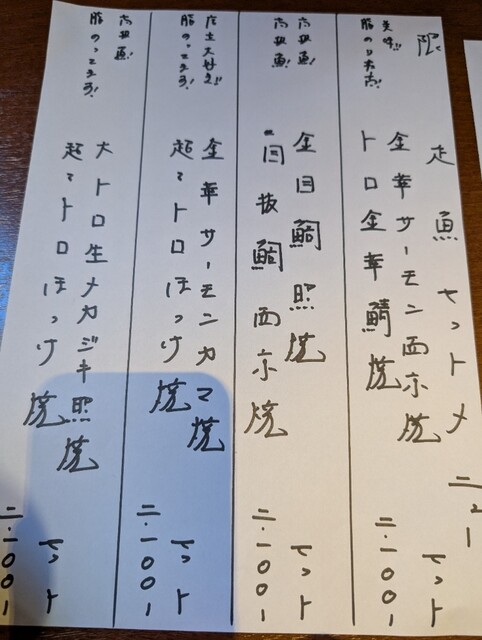 限定魚セットメニュー
美味!!
金華サーモン西京焼
脂のり最高!
トロ金華鯖焼
セット
二・一〇〇ー
高級魚!
金目鯛照焼
高級魚!
目抜鯛西京焼
セット
二・一〇〇ー
店主大好き!!
金華サーモンカマ焼
脂のってまろ!
超々トロほっけ焼
セット
二・一〇〇ー
高級魚!
大トロ生メカジキ照焼
脂のってまろ!
超々トロほっけ焼
セット
二・一〇〇ー